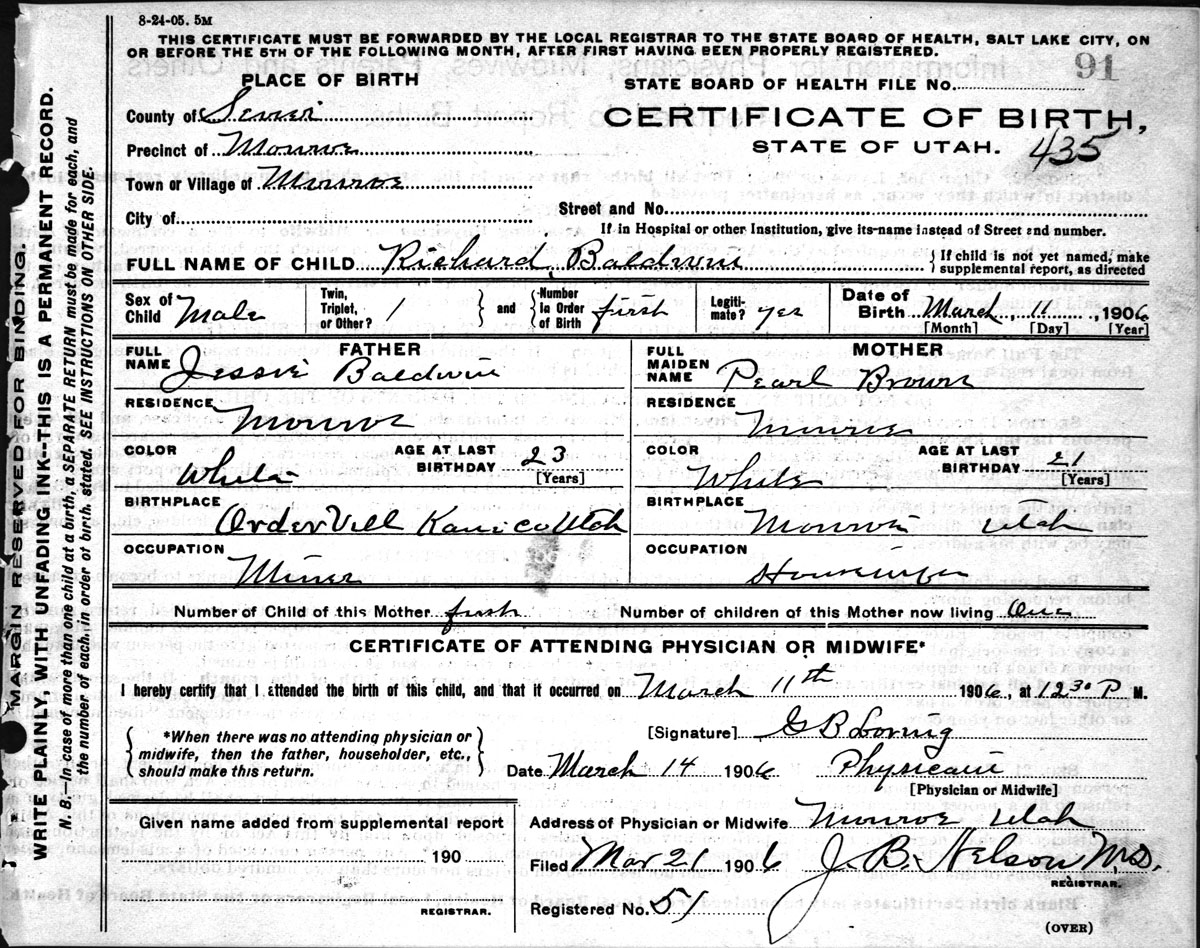 8-24-05. 5M
THIS CERTIFICATE MUST BE FORWARDED BY THE LOCAL REGISTRAR TO THE STATE BOARD OF HEALTH, SALT LAKE CITY, ON
OR BEFORE THE 5TH OF THE FOLLOWING MONTH, AFTER FIRST HAVING BEEN PROPERLY REGISTERED.
MARGIN RESERVED FOR BINDING.
WRITE PLAINLY, WITH UNFADING INK--THIS IS A PERMANENT RECORD.
N. B.—In case of more than one child at a birth, a SEPARATE RETURN must be made for each, and
the number of each, in order of birth, stated. SEE INSTRUCTIONS ON OTHER SIDE.
PLACE OF BIRTH
STATE BOARD OF HEALTH FILE NO. 91
County of Sevier
CERTIFICATE OF BIRTH,
Precinct of Monroe
STATE OF UTAH. 435
Town or Village of Monroe
City of
Street and No.
If in Hospital or other Institution, give its name instead of Street and number.
FULL NAME OF CHILD Richard Baldwin
{ If child is not yet named, make
supplemental report, as directed
Sex of Child Male
Twin, Triplet, or Other? 1
and
Number in Order of Birth first
Legitimate? yes
Date of Birth March 11, 1906
[Month] [Day] [Year]
FATHER
FULL NAME Jessie Baldwin
MOTHER
FULL MAIDEN NAME Pearl Brown
RESIDENCE Monroe
RESIDENCE Monroe
COLOR White
AGE AT LAST BIRTHDAY 23
[Years]
COLOR White
AGE AT LAST BIRTHDAY 21
[Years]
BIRTHPLACE OrderVill Kane co Utah
BIRTHPLACE Monroe Utah
OCCUPATION Miner
OCCUPATION Housewife
Number of Child of this Mother first
Number of children of this Mother now living One
CERTIFICATE OF ATTENDING PHYSICIAN OR MIDWIFE*
I hereby certify that I attended the birth of this child, and that it occurred on March 11th 1906, at 12 30 P M.
*When there was no attending physician or
midwife, then the father, householder, etc.,
should make this return.
[Signature] G B Loring
Date March 14 1906 Physician
[Physician or Midwife]
Given name added from supplemental report
190
REGISTRAR.
Address of Physician or Midwife Monroe Utah
Filed Mar 21 1906 J. B. Nelson M.D.
REGISTRAR.
Registered No. 51
(OVER)